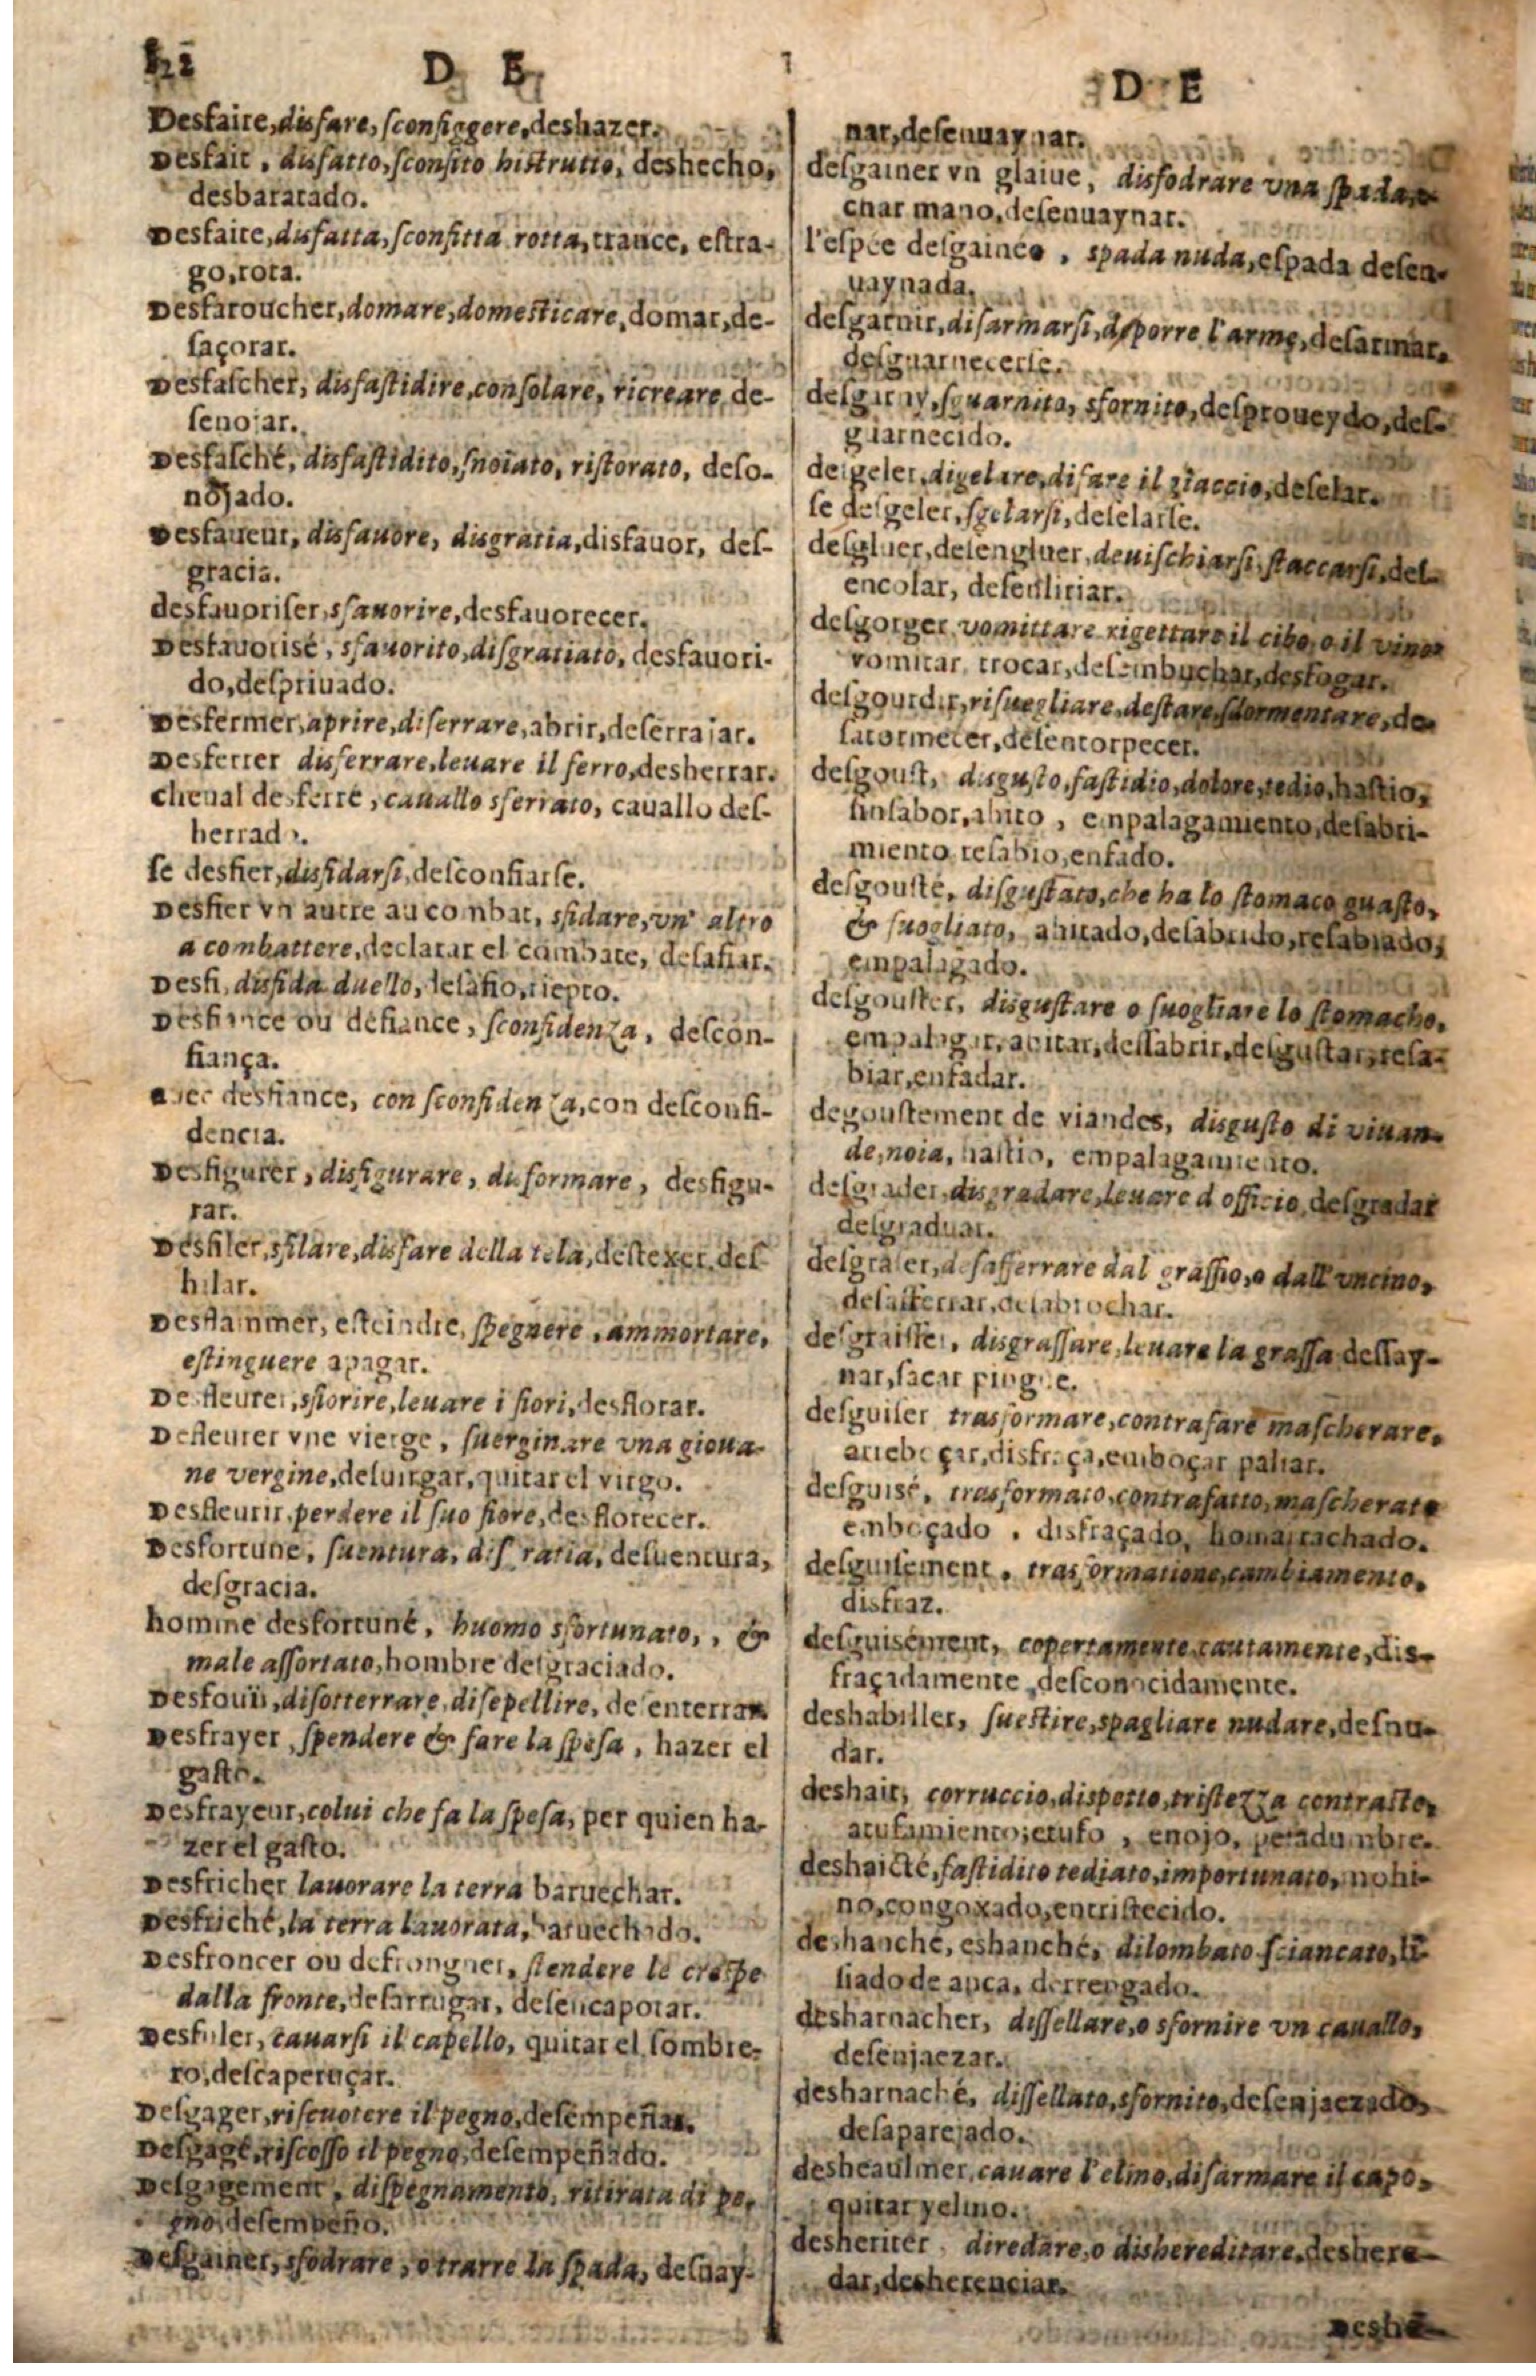 D E
Desfaire, disfare, sconfiggere, deshazer.
Desfait, disfatto, sconfito histrutto, deshecho,
desbaratado.
Desfaite, disfatta, sconfitta rotta, trance, estra-
go, rota.
Desfaroucher, domare, domesticare, domar, de-
saçorar.
Desfascher, disfastidire, consolare, ricreare, de-
senojar.
Desfasché, disfastidito, snoiato, ristorato, deso-
nojado.
Desfaueur, disfauore, disgratia, disfauor, des-
gracia.
desfauoriser, sfauorire, desfauorecer.
Desfauorisé, sfauorito, disgratiato, desfauori-
do, despriuado.
Desfermer, aprire, diserrare, abrir, deserrajar.
Desferrer disferrare, leuare il ferro, desherrar.
cheual desferré, cauallo sferrato, cauallo des-
herrado.
se desfier, disfidarsi, desconfiarse.
Desfier vn autre au combat, sfidare, vn' altro
a combattere, declarar el combate, desafiar.
Desfi, disfida duello, desafio, riepto.
Desfiance ou défiance, sconfidenza, descon-
fiança.
auec desfiance, con sconfidenza, con desconfi-
dencia.
Desfigurer, disfigurare, disformare, desfigu-
rar.
Desfiler, sfilare, disfare della tela, destexer, des-
hilar.
Desflammer, esteindre, spegnere, ammortare,
estinguere apagar.
Desfleurer, sfiorire, leuare i fiori, desflorar.
Defleurer vne vierge, suerginare vna gioua-
ne vergine, desuirgar, quitar el virgo.
Desfleurir, perdere il suo fiore, desflorecer.
Desfortune, suentura, disgratia, desuentura,
desgracia.
homme desfortuné, huomo sfortunato, , &
male assortato, hombre desgraciado.
Desfouïr, disotterrare, disepellire, desenterrar.
Desfrayer, spendere & fare la spesa, hazer el
gasto.
Desfrayeur, colui che fa la spesa, per quien ha-
zer el gasto.
Desfricher lauorare la terra baruechar.
Desfriché, la terra lauorata, baruechado.
Desfroncer ou defrongner, stendere le crespe
dalla fronte, desarrugar, desencapotar.
Desfuler, cauarsi il capello, quitar el sombre-
ro, descaperuçar.
Desgager, riscuotere il pegno, desempeñar.
Desgagé, riscosso il pegno, desempeñado.
Desgagement, dispegnamento, ritirata di pe-
gno, desempeño.
Desgainer, sfodrare, o trarre la spada, desuay-
D E
nar, desenuaynar.
desgainer vn glaiue, disfodrare vna spada,
enar mano, desenuaynar.
l'espée desgainée, spada nuda, espada desen-
uaynada.
desgarnir, disarmarsi, disporre l'arme, desarmar,
desguarnecerse.
desgarny, sguarnito, sfornito, desproueydo, des-
guarnecido.
desgeler, digelare, disare il giaccio, deselar.
se desgeler, sgelarsi, deselarse.
desgluer, desengluer, deuischiarsi, staccarsi, des-
encolar,
desgorger vomittare rigettare il cibo, o il vino
vomitar, trocar, desembuchar, desfogar.
desgourdir, risuegliare, destare, sdormentare, de-
satormecer, desentorpecer.
desgoust, disgusto, fastidio, dolore, tedio, hastio,
sinsabor, ahito, empalagamiento, desabri-
miento, resabio, enfado.
desgousté, disgustato, che ha lo stomaco guasto,
& suogliato, ahitado, desabrido, resabiado,
empalagado.
desgouster, disgustare o suogliare lo stomacho,
empalagar, ahitar, dessabrir, desgustar, resa-
biar, enfadar.
degoustement de viandes, disgusto di viuan-
de, noia, hastio, empalagamiento.
desgrader, disgradare, leuare d officio, desgradar
desgraduar.
desgrafer, desafferrare dal graffio, o dall'vncino,
desasferrar, desabrochar.
desgraisser, disgrassare, leuare la grassa dessay-
nar, sacar pingue.
desguiser trasformare, contrafare mascherare,
arieboçar, disfraça, emboçar paliar.
desguisé, trasformato, contrafatto, mascherato
emboçado, disfraçado, homarrachado.
desguisement, trasformatione, cambiamento,
disfraz.
desguisément, copertamente, cautamente, dis-
fraçadamente, desconocidamente.
deshabiller, suestire, spagliare nudare, desnu-
dar.
deshait, corruccio, dispetto, tristezza contraste,
atufamiento; etufo, enojo, pesadumbre.
deshaicté, fastidito tediato, importunato, mohi-
no, congoxado, entristecido.
deshanché, eshanché, dilombato sciancato, li-
siado de anca, derrengado.
desharnacher, dissellare, o sfornire vn cauallo,
desenjaezar.
desharnaché, dissellato, sfornito, desenjaezado,
desaparejado.
desheaulmer, cauare l'elmo, disarmare il capo,
quitar yelmo.
desheriter diredare, o dishereditare, deshere-
dar, desherenciar.
Deshé-